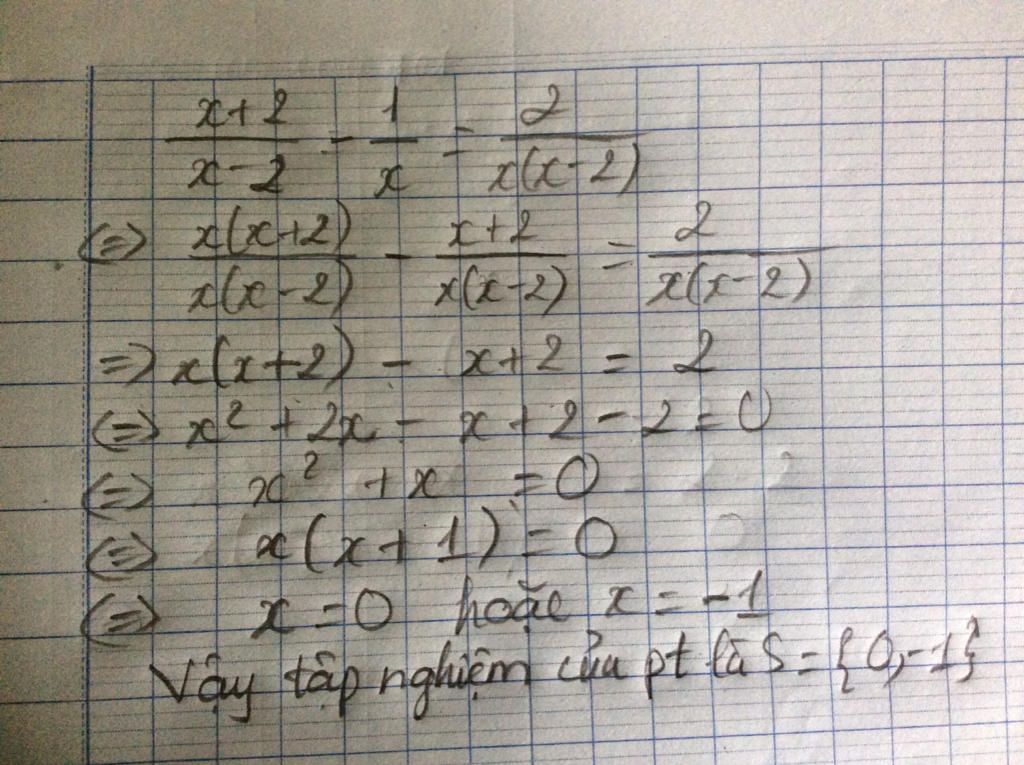 x+2/x-2 - 1/x = 2/x(x-2)
(=) x(x+2)/x(x-2) - x+2/x(x-2) = 2/x(x-2)
=) x(x+2) - x+2 = 2
(=) x² + 2x - x + 2 - 2 = 0
(=) x² + x = 0
(=) x(x+1) = 0
(=) x = 0 hoặc x = -1
Vậy tập nghiệm của pt là S = {0,-1}